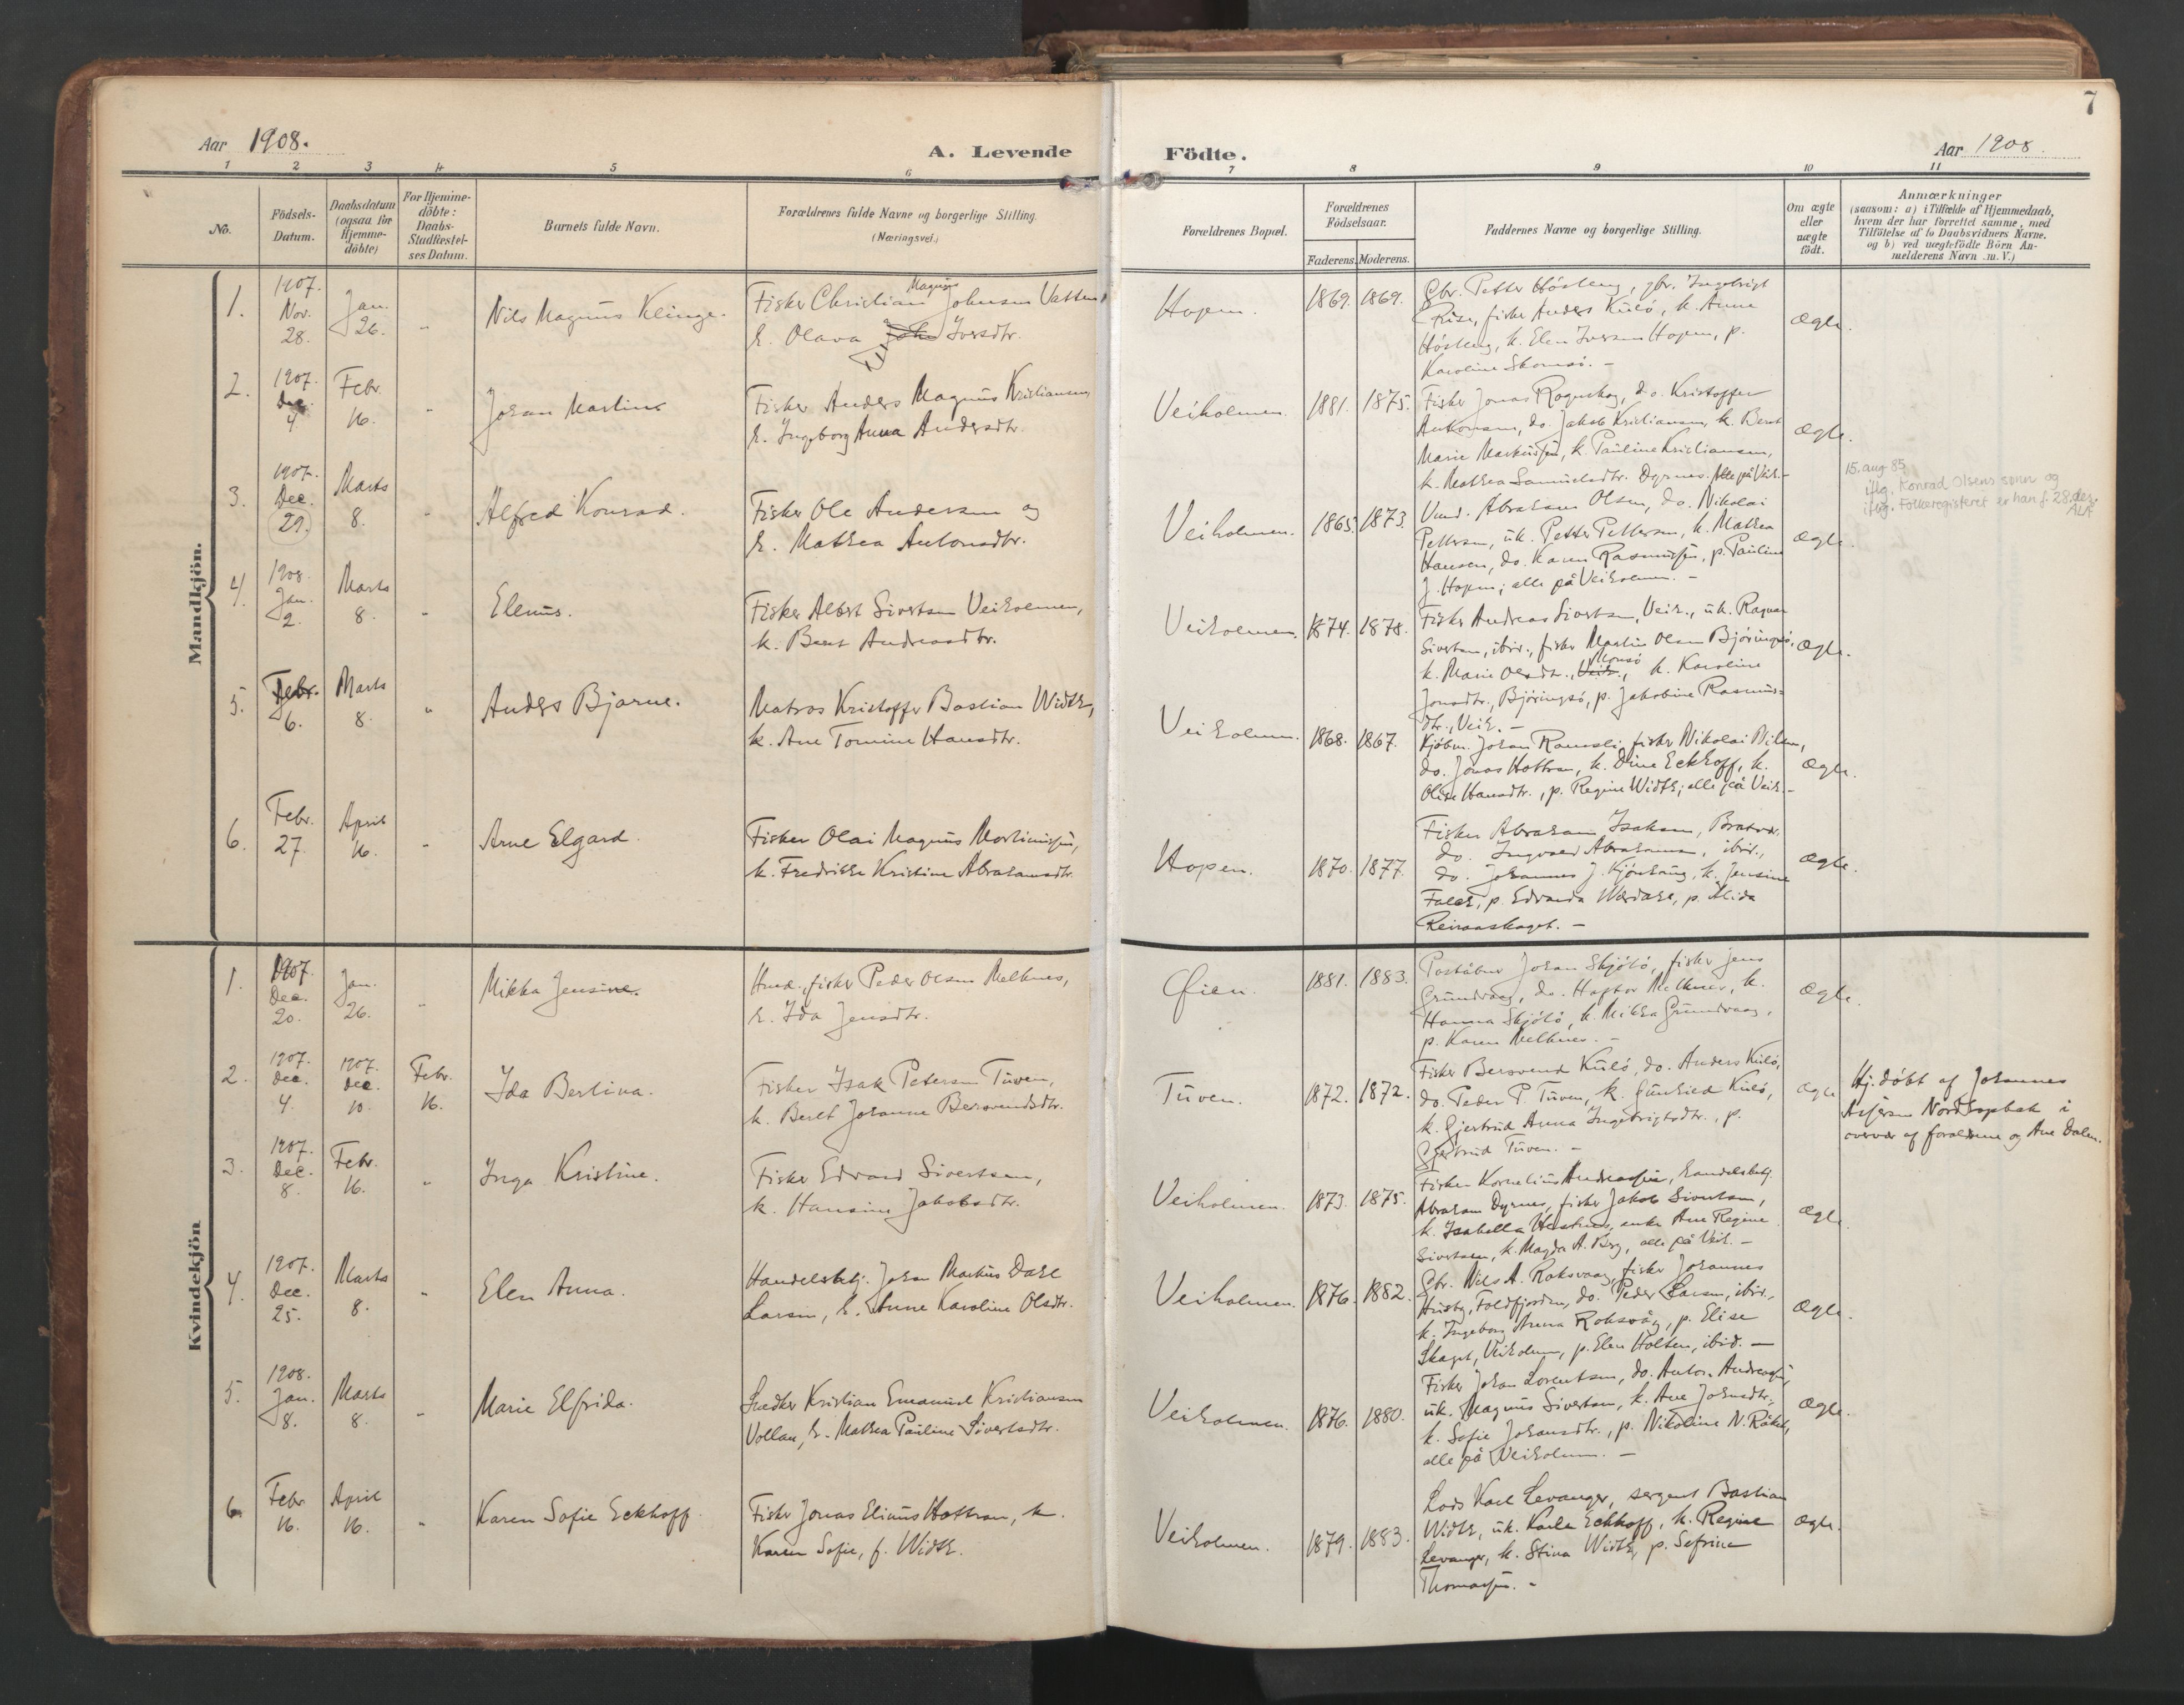 7
Aar 1908.
A. Levende
Fødte.
Aar 1908.
1 2 3 4 5 6 7 8 9 10 11
No.
Fødsels-
Datum.
Daabsdatum
(ogsaa for
Hjemme-
døbte)
For Hjemme-
døbte:
Daabs-
Stadfæstel-
ses Datum.
Barnets fulde Navn.
Forældrenes fulde Navne og borgerlige Stilling.
(Næringsvei.)
Forældrenes Bopæl.
Forældrenes
Fødselsaar.
Faderens. Moderens.
Faddernes Navne og borgerlige Stilling.
Om ægte
eller
uægte
født.
Anmærkninger
(saasom: a) i Tilfælde af Hjemmedaab,
hvem der har forrettet samme, med
Tilføielse af to Daabsvidners Navne,
og b) ved uægtefødte Børn An-
melderens Navn m. V.)
Mandkjön.
1.
1907.
Nov.
28.
Jan.
26.
"
Nils Magnus Klinge.
Magnus
Fisker Christian Johnsen Vatten
k. Olava Iversdtr.
Hopen.
1869. 1869.
Gbr. Petter Høsteng, gbr. Ingebrigt
Rise, fisker Anders Kulø, k. Anne
Høsteng, k. Elen Iversen Hopen, p.
Karoline Skomsø. -
Ægte.
2.
1907.
Dec.
4
Febr.
16.
"
Johan Martins
Fisker Anders Magnus Kristiansen,
k. Ingeborg Anna Andersdtr.
Veiholmen.
1881. 1875.
Fisker Jonas Rognskog, do. Kristoffer
Antonsen, do. Jakob Kristiansen, k. Berit
Marie Markussen, k. Pauline Kristiansen,
k. Mathea Samuelsdtr. Dyrnes. Alle på Veih.-
Ægte.
3.
1907.
Dec.
29.
Marts
8.
"
Alfred Konrad.
Fisker Ole Andersen og
k. Mathea Antonsdtr.
Veiholmen.
1865. 1873.
Abraham Olsen, do. Nikolai
Pettersen, uk. Petter Pettersen, k. Mathea
Hansen, do. Karen Rasmussen, p. Pauline
J. Hopen; alle på Veiholmen. -
Ægte.
15. aug 85
iflg. Konrad Olsens sønn og
iflg. Folkeregisteret er han f. 28. des.
ALA
4.
1908.
Jan.
2.
Marts
8.
"
Elenus.
Fisker Albert Sivertsen Veiholmen,
k. Berit Andreasdtr.
Veiholmen.
1874. 1878.
Fisker Andreas Sivertsen, Veih., uk. Ragnar
Sivertsen, ibid., fisker Martin Olsen Bjøringsø,
k. Marie Olsdtr., Monsø, k. Karoline
Jonsdtr., Bjøringsø, p. Jakobine Rasmus-
dtr., Veih. -
Ægte.
5.
Febr.
6.
Marts
8.
"
Anders Bjarne.
Matros Kristoffer Bastian Width,
k. Ane Tomine Hansdtr.
Veiholmen.
1868. 1867.
Kjøbm. Johan Ramsli, fisker Nikolai Nilsen,
do. Jonas Hottran, k. Dina Eckhoff, k.
Olise Hansdtr., p. Regine Width; alle på Veih. -
Ægte.
6.
Febr.
27.
April
16.
"
Arne Elgard.
Fisker Olai Magnus Martinussen,
k. Fredrikke Kristine Abrahamsdtr.
Hopen.
1870. 1877.
Fisker Abraham Isaksen, Bratvær.
do. Ingvald Abrahamsen, ibid.,
do. Johannes J. Kjønhaug, k. Jensine
Falch, p. Edvarda Werdahl, p. Alida
Reiraaskaget. -
Ægte.
Kvindekjön
1.
1907.
Dec.
20.
Jan.
26.
"
Mikka Jensine.
Husm., fisker Peder Olsen Melknes,
k. Ida Jensdtr.
Øien.
1881. 1883.
Postaabner Johan Skjølø, fisker Jens
Grundvaag, do. Hagbar Melknes, k.
Hanna Skjølø, k. Mikka Grundvaag,
p. Karen Melknes. -
Ægte.
2.
1907.
Dec.
4.
1907.
Dec.
10.
Febr.
16.
Ida Berlina.
Fisker Isak Petersen Tuven,
k. Berit Johanne Bersvendsdtr.
Tuven.
1872. 1872.
Fisker Bersvend Kulø, do. Anders Kulø,
do. Peder P. Tuven, k. Gunhild Kulø,
k. Gjertrud Anna Ingebrigtsdtr., p.
Gjertrud Tuven. -
Ægte
Hj. døbt af Johannes
Nordhopbak i
overvær af forældrene og Ane Dalen.
3.
1907.
Dec.
8.
Febr.
16.
"
Inga Kristine.
Fisker Edvard Sivertsen,
k. Hansine Jakobsdtr.
Veiholmen.
1873. 1875.
Fisker Kornelius Andreassen, handelsbetj.
Abraham Dyrnes, fisker Jakob Sivertsen,
k. Isabella Hestnes, enke Ane Regine
Sivertsen, k. Magda A. Berg, alle på Veih. -
Ægte.
4.
1907.
Dec.
25.
Marts
8.
"
Elen Anna.
Handelsbetj. Johan Markus Dahl
Larsen, k. Anne Karoline Olsdtr.
Veiholmen.
1876. 1882.
Gbr. Nils A. Roksvaag, fisker Johannes
Husby, Foldfjorden, do. Peder Larsen, ibid.,
k. Ingeborg Anna Roksvåg, p. Elise
Skaget, Veiholmen, p. Elen Holten, ibid. -
Ægte.
5.
1908.
Jan.
8.
Marts
8.
"
Marie Elfrida.
Snedker Kristian Emanuel Kristiansen
Vollan, k. Mathea Pauline Sivertsdtr.
Veiholmen.
1876. 1880.
Fisker Johan Lorentsen, do. Anton Andreassen,
uk. Magnus Sivertsen, k. Ane Johnsdtr.,
k. Sofie Johansdtr., p. Nikoline N.
alle på Veiholmen. -
Ægte.
6.
Febr.
16.
April
16.
"
Karen Sofie Eckhoff.
Fisker Jonas Elinus Hottran, k.
Karen Sofie, f. Width.
Veiholmen.
1879. 1883.
Lods Karl Levanger, sergent Bastian
Width, uk. Karle Eckhoff, k. Regine
Levanger, k. Stina Width, p. Sefrine
Thomassen. -
Ægte.